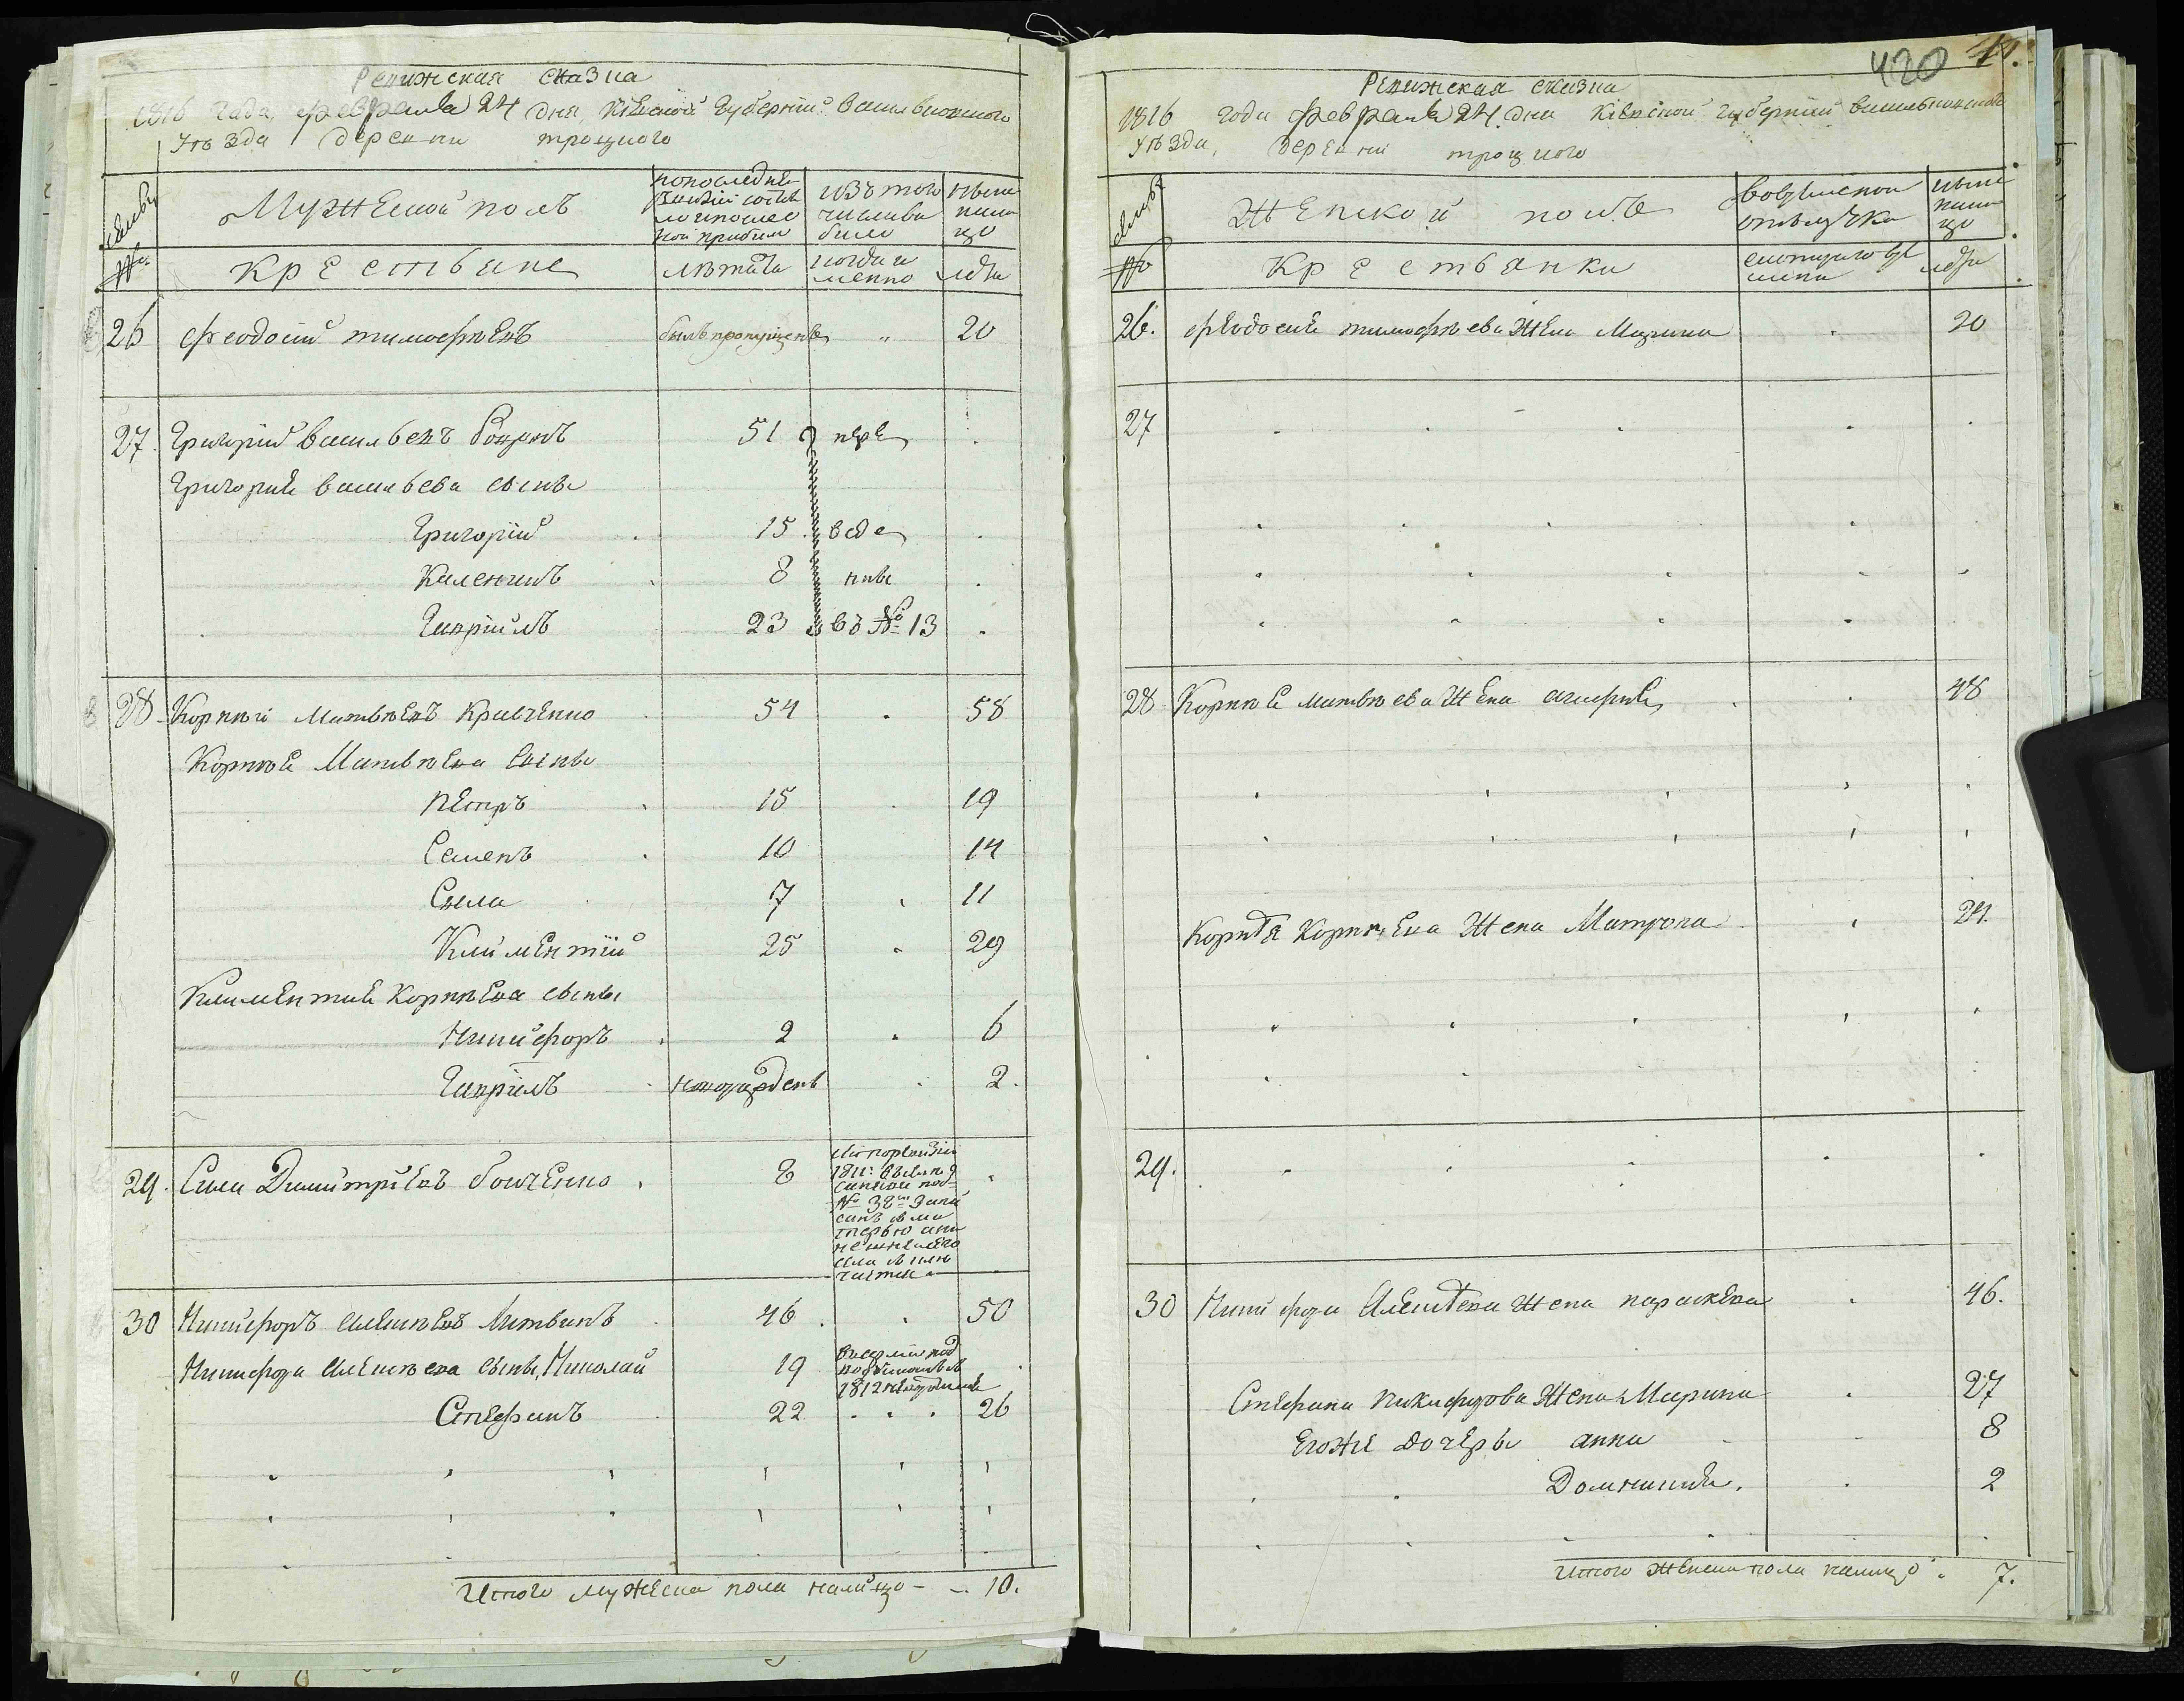 Ревижская сказка
1816 года, февраля 24 дня, Кіевской губерніи васильковского
уѣзда деревни троцкого
Мужеской полъ
по последней ревизіи состояло и после ной прибыло
изъ того числа выбыло
ныне налицо
№
Крестьяне
лѣта
когда именно
лѣта
26 Феодосій тимофѣевъ былъ пропущенъ " 20
27. Григорій васильевъ 51 пере
Григорія васильева сыны
Григорій 15. веде
Каленикъ 8 ны
Гавріилъ 23 въ № 13
28 Корнѣй Матвѣевъ Кравченко 54 58
Корнѣя Матвѣева сыны
Петръ 15 19
Семенъ 10 14
Сыла 7 11
Климентій 25 29
Климентия Корнѣева сыны
Никифоръ 2 6
Гавріилъ новорожденъ 2.
29. Сила Димитріевъ 8
по ревизіи
1811
№ 32
30 Никифоръ Алексѣевъ Литвинъ 46 50
Никифора Алексѣева сыны, Николай 19
1812
Стефанъ 22 26
Итого мужеска пола налицо - 10.
420
Ревижская сказка
1816 года февраля 24. дня Кіевской губерніи васильковского
уѣзда, деревни троцкого
Женской полъ
во временной отлучке
ныне налицо
№
Крестьянки
с которого времени
лѣта
26. Феодосия тимофѣева жена Марина 20
27
28 Корнѣя матвѣева жена 48
Корнѣева жена Матрона 24.
29.
30 Никифора Алексѣева жена параскева 46.
Стефана никифорова жена Марина 27
Его же дочеры анна 8
Домникия. 2
Итого женска пола налицо 7.